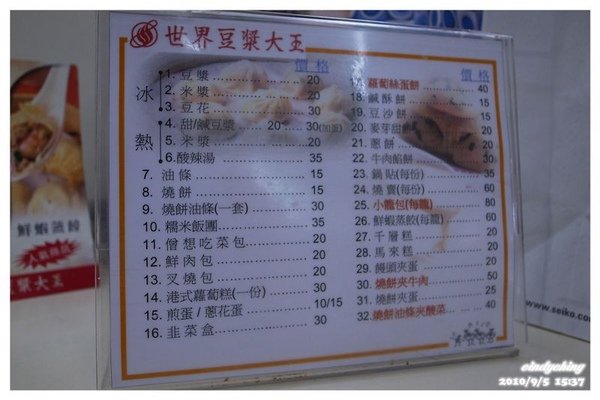 世界豆漿大王
價格
冰
1. 豆漿 20
2. 米漿 20
3. 豆花 30
熱
4. 甜/鹹豆漿 20 30(加蛋)
5. 米漿 20
6. 酸辣湯 35
7. 油條 15
8. 燒餅 15
9. 燒餅油條(一套) 30
10. 糯米飯團 35
11. 僧想吃菜包 20
12. 鮮肉包 20
13. 叉燒包 20
14. 港式蘿蔔糕(一份) 30
15. 煎蛋/蔥花蛋 10/15
16. 韭菜盒 30
價格
17. 蘿蔔絲蛋餅 40
18. 鹹酥餅 15
19. 豆沙餅 15
20. 麥芽甜 20
21. 蔥餅 20
22. 牛肉餡餅 30
23. 鍋貼(每份) 35
24. 燒賣(每份) 60
25. 小籠包(每籠) 80
26. 鮮蝦蒸餃(每籠) 60
27. 千層糕 20
28. 馬來糕 20
29. 饅頭夾蛋 20
30. 燒餅夾牛肉 50
31. 燒餅夾蛋 25
32. 燒餅油條夾酸菜 40
鮮蝦蒸餃
漿大王
www.seiko.co
cindyching
2010/9/5 15:37